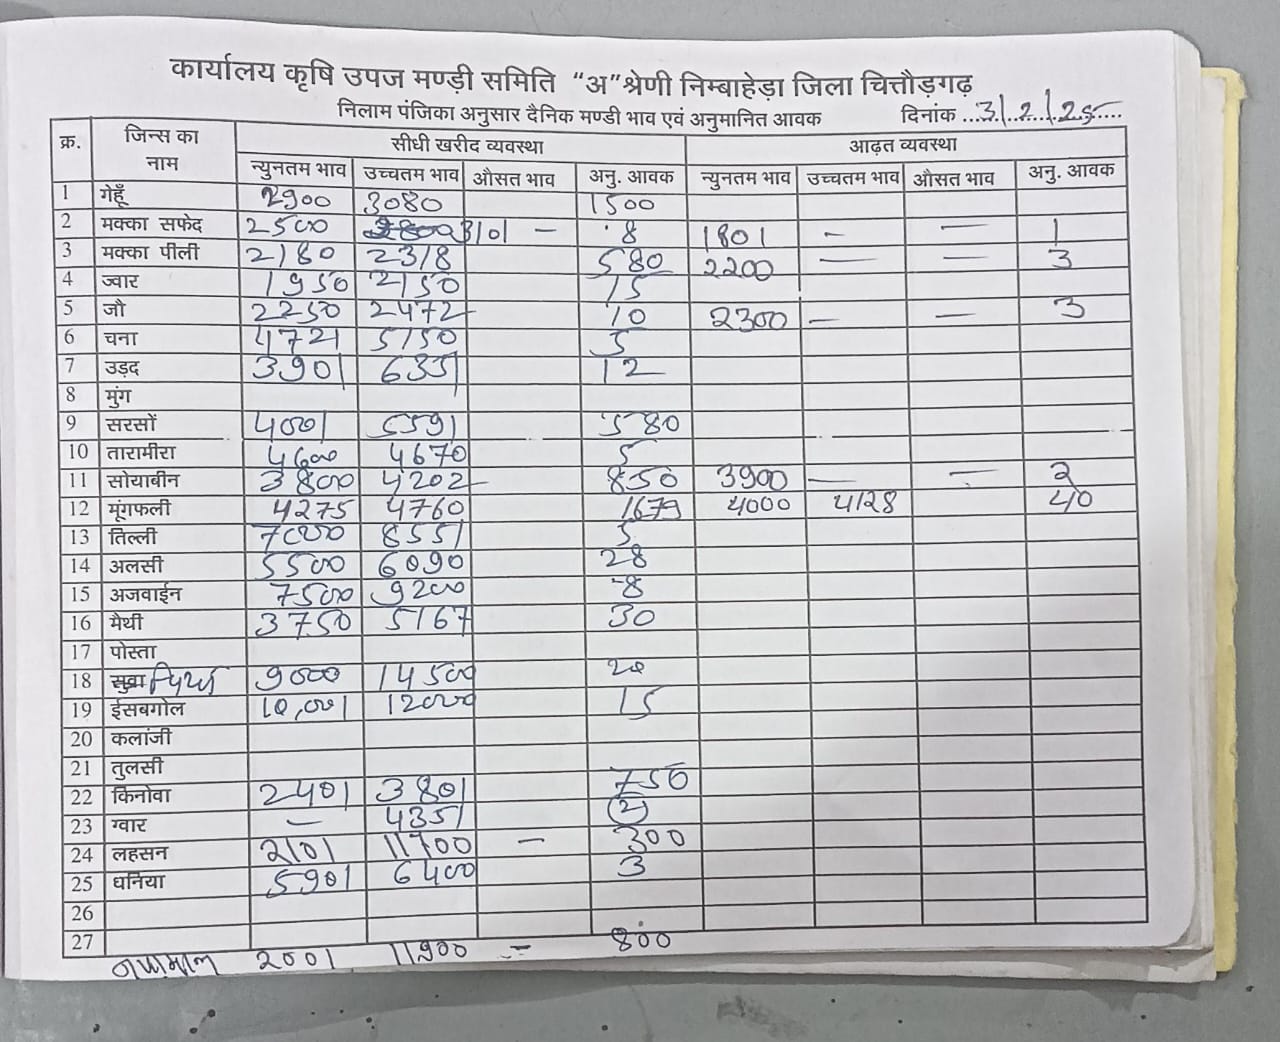 कार्यालय कृषि उपज मण्डी समिति "अ"श्रेणी निम्बाहेड़ा जिला चित्तौड़गढ़
निलाम पंजिका अनुसार दैनिक मण्डी भाव एवं अनुमानित आवक दिनांक ...3/.2./.25....
क्र. जिन्स का नाम सीधी खरीद व्यवस्था आढ़त व्यवस्था
न्युनतम भाव उच्चतम भाव औसत भाव अनु. आवक न्युनतम भाव उच्चतम भाव औसत भाव अनु. आवक
1 गेहूँ 2900 3080 1500
2 मक्का सफेद 2500 3101 — 8 1801 — — 1
3 मक्का पीली 2180 2318 580 2200 — — 3
4 ज्वार 1950 2150 15
5 जौ 2250 2472 10 2300 — — 3
6 चना 4721 5150 5
7 उड़द 3901 6351 12
8 मुंग
9 सरसों 4001 5591 580
10 तारामीरा 4600 4670 5
11 सोयाबीन 3800 4202 850 3900 — — 2
12 मूंगफली 4275 4760 1679 4000 4128 40
13 तिल्ली 7000 8551 5
14 अलसी 5500 6090 28
15 अजवाईन 7500 9200 8
16 मैथी 3750 5167 30
17 पोस्ता
18 9000 14500 20
19 ईसबगोल 10,001 12000 15
20 कलांजी
21 तुलसी
22 किनोवा 2401 3801 750
23 ग्वार — 4351 2
24 लहसन 2101 11700 — 300
25 धनिया 5901 6400 3
26
27
2001 11900 — 800